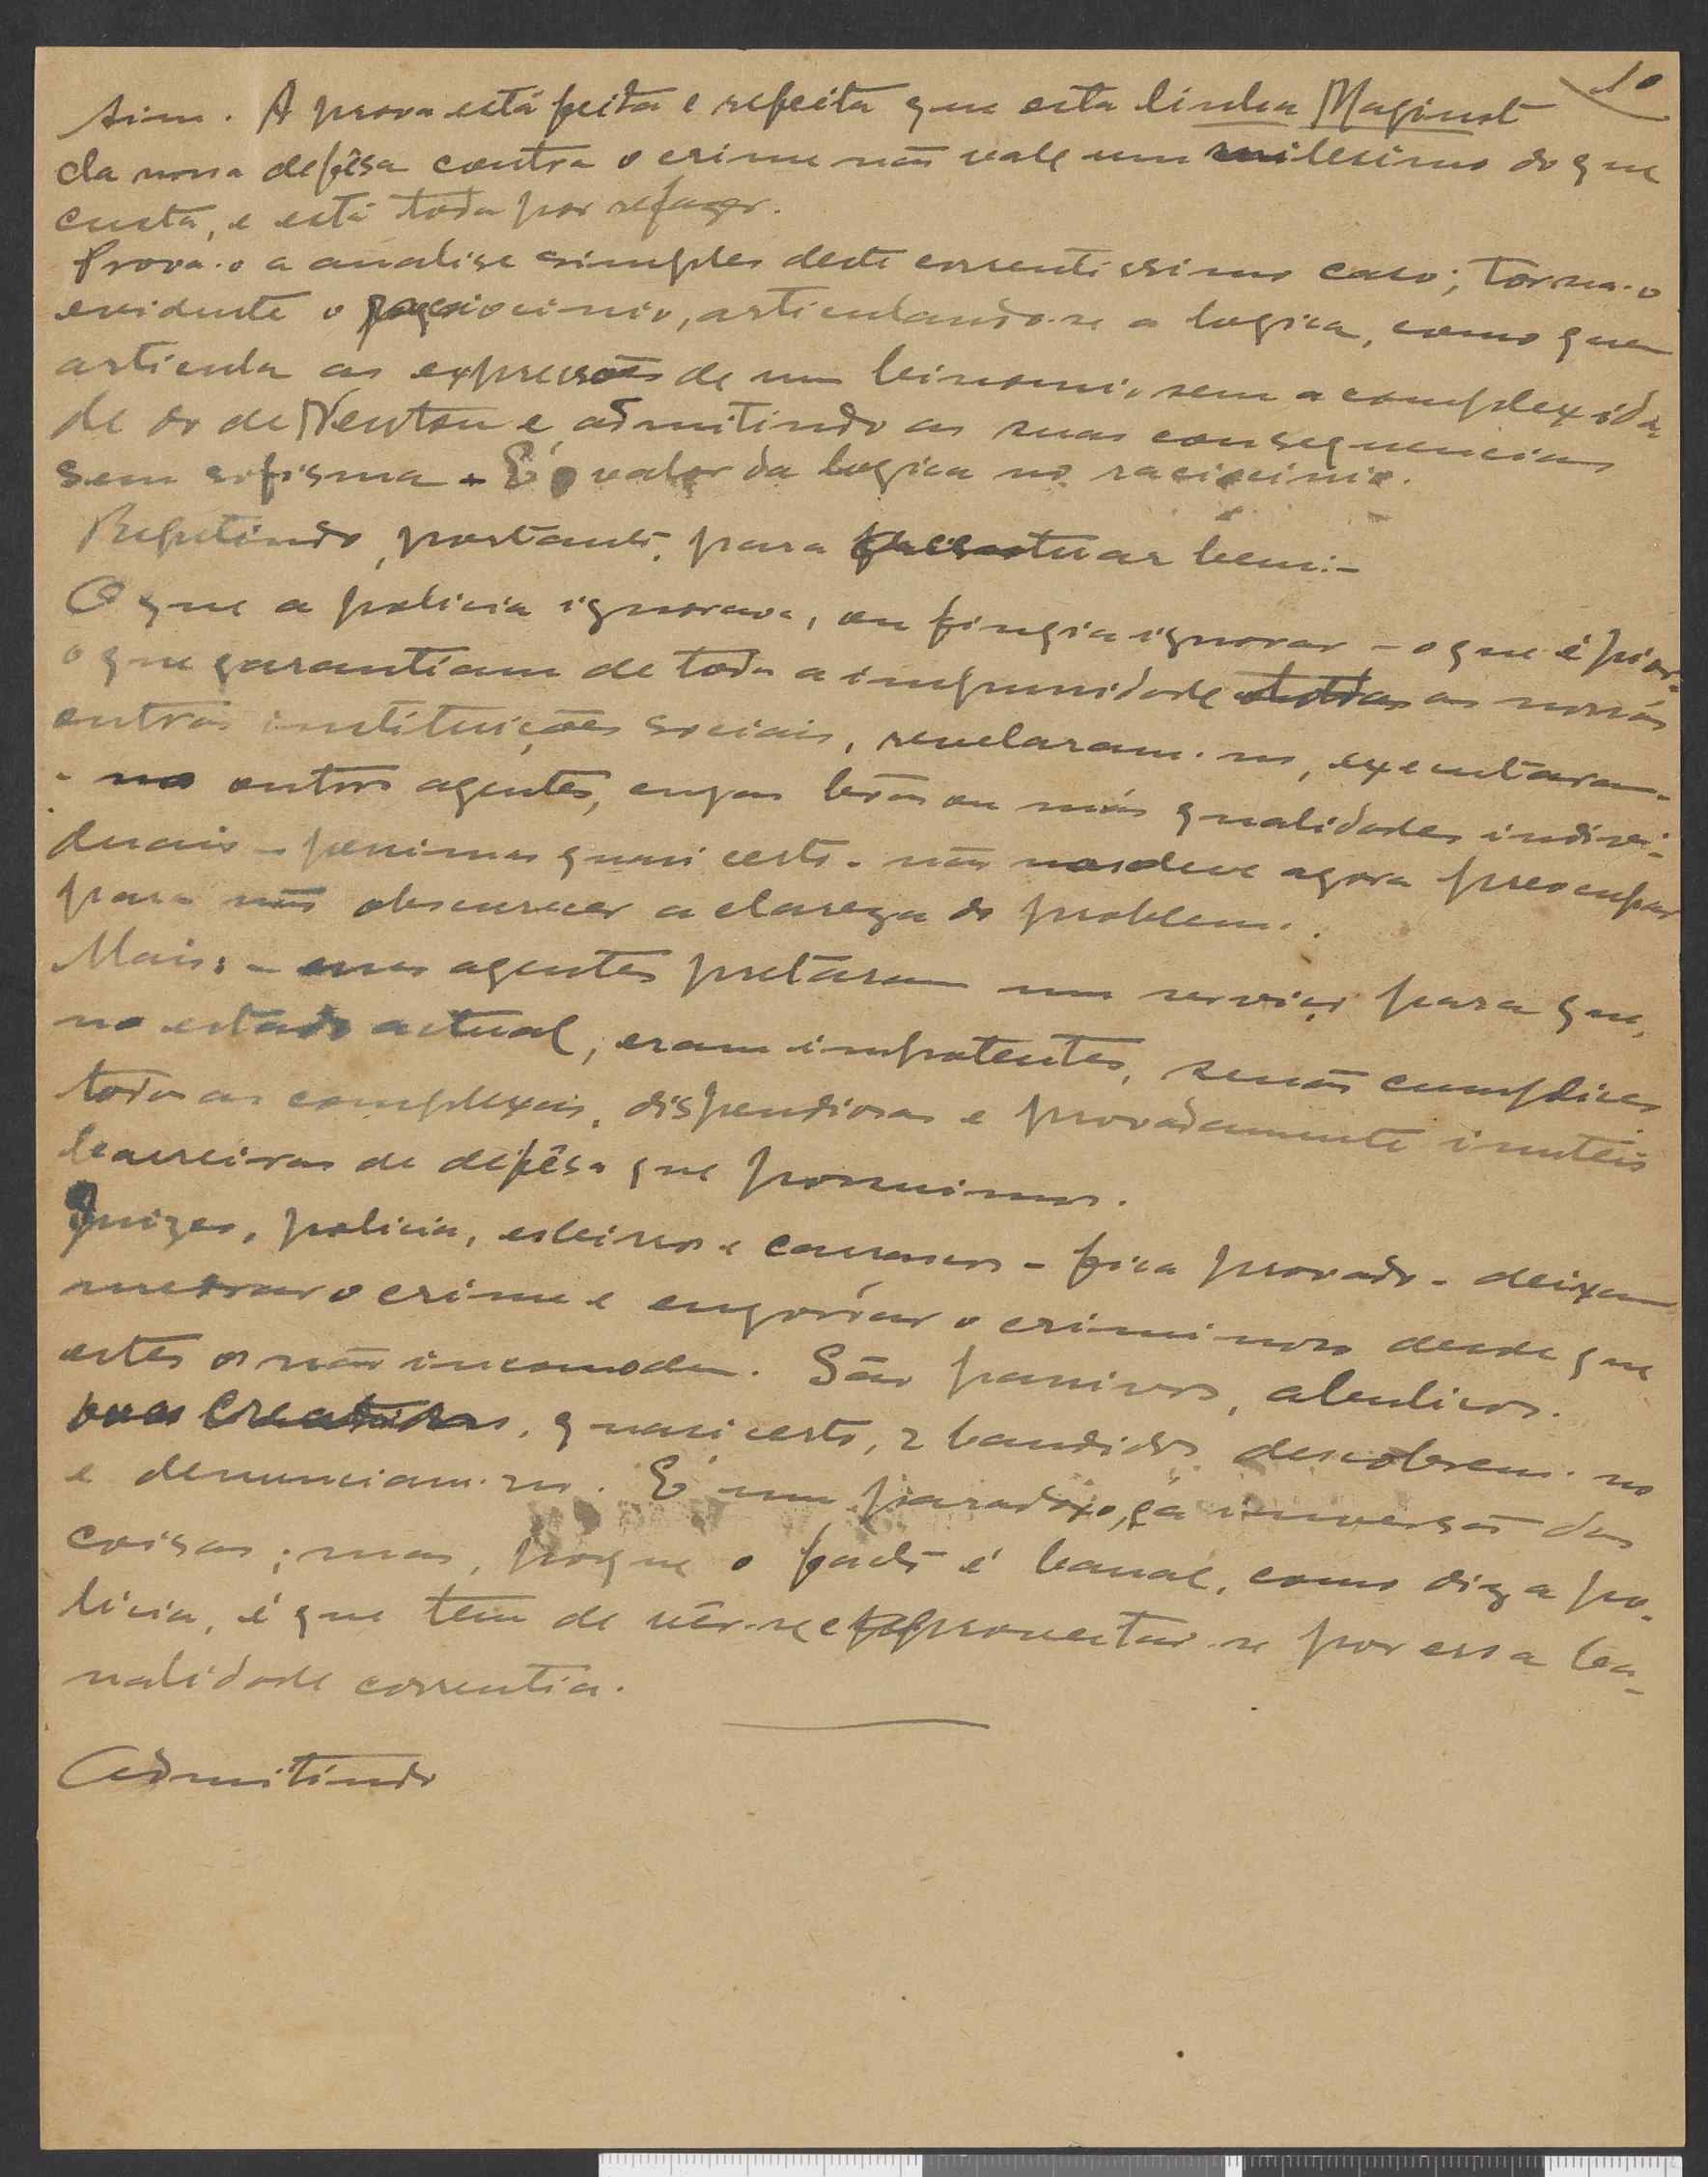 10
sim. A prova está feita e refeita que esta linha Maginot
da nossa defêsa contra o crime não vale um milesimo do que
custa, e está toda por refazer.
Prova-o a analise simples deste correntissimo caso; torna-o
evidente o raciocinio, articulando-se a logica, como quem
articula as expressões de um binomio, sem a complexida-
de do de Newton e admitindo as suas consequencias
sem sofisma. É o valor da logica no raciocinio.
Repetindo, portanto, para acentuar bem:-
O que a policia ignorava, ou fingia ignorar - o que é pior-
o que garantiam de toda a impunidade todas as nossas
outras instituições sociais, revelaram-no, executaram-
-no outros agentes, cujas bôas ou más qualidades indivi-
duais - pessimas quasi certo - não nos deve agora preocupar
para não obscurecer a clareza do problema.
Mais: - esses agentes prestaram um serviço para que,
no estado actual, eram impotentes, senão cumplices
todas as complexas, dispendiosas e provadamente inuteis
barreiras de defêsa que possuimos.
Juizes, policia, esbirros e carrascos - fica provado - deixam
medrar o crime e engordar o criminoso desde que
estes os não incomodem. São passivos, abulicos.
Duas creaturas, quasi certo, 2 bandidos descobrem-no
e denunciam-no. É um paradoxo, é a inversão das
coisas; mas, porque o facto é banal, como diz a po-
licia, é que tem de vêr-se e aproveitar-se por essa ba-
nalidade correntia.
Admitindo